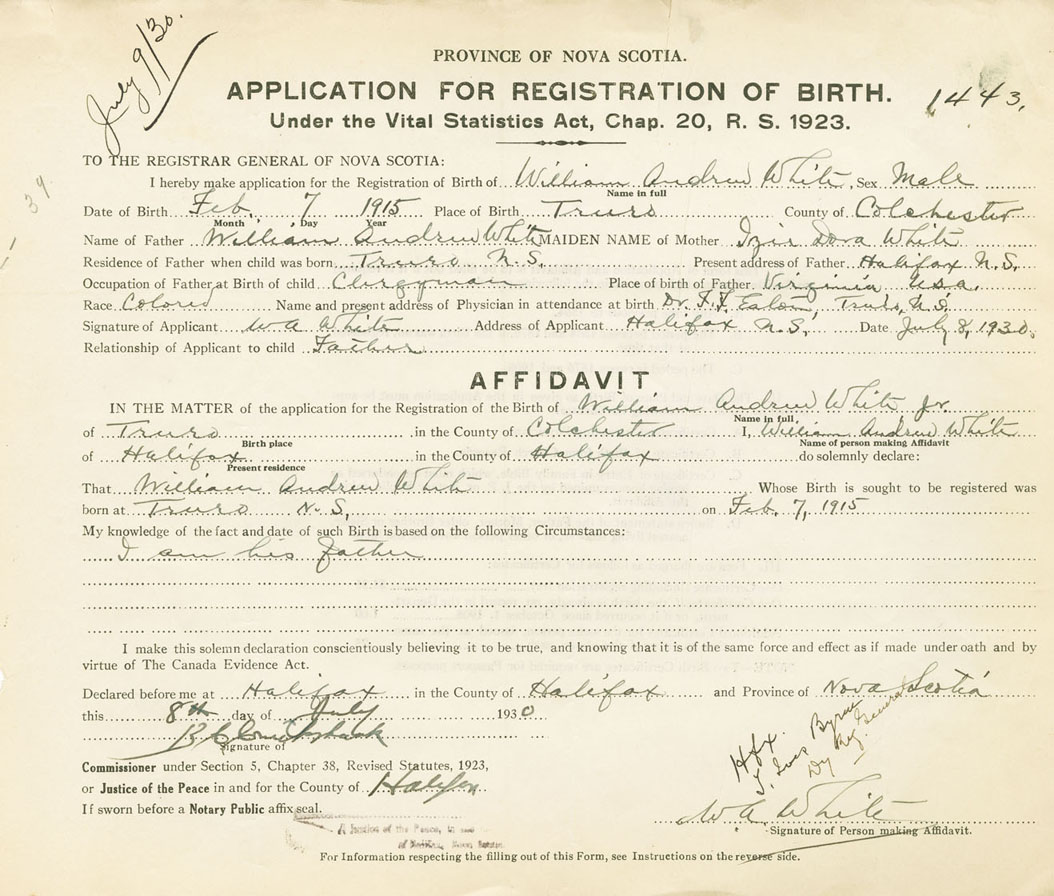 July 9/30.
PROVINCE OF NOVA SCOTIA.
APPLICATION FOR REGISTRATION OF BIRTH.
1443.
Under the Vital Statistics Act, Chap. 20, R. S. 1923.
TO THE REGISTRAR GENERAL OF NOVA SCOTIA:
I hereby make application for the Registration of Birth of William Andrew White, Sex Male
Name in full
39
Date of Birth Feb. 7 1915 Place of Birth Truro County of Colchester
Month Day Year
Name of Father William Andrew White MAIDEN NAME of Mother Izie Dora White
Residence of Father when child was born Truro N.S. Present address of Father Halifax N.S.
Occupation of Father at Birth of child Clergyman Place of birth of Father Virginia U.S.A.
Race Colored Name and present address of Physician in attendance at birth Dr. F. F. Eaton, Truro, N.S.
Signature of Applicant W A White Address of Applicant Halifax N.S. Date July 8, 1930.
Relationship of Applicant to child Father
AFFIDAVIT
IN THE MATTER of the application for the Registration of the Birth of William Andrew White Jr.
Name in full,
of Truro in the County of Colchester I, William Andrew White
Birth place Name of person making Affidavit
of Halifax in the County of Halifax do solemnly declare:
Present residence
That William Andrew White Whose Birth is sought to be registered was
born at Truro N.S, on Feb. 7, 1915
My knowledge of the fact and date of such Birth is based on the following Circumstances:
I am his father
I make this solemn declaration conscientiously believing it to be true, and knowing that it is of the same force and effect as if made under oath and by
virtue of The Canada Evidence Act.
Declared before me at Halifax in the County of Halifax and Province of Nova Scotia
this 8th day of July 1930
Signature of
Hfx.
Dy Reg. General
Commissioner under Section 5, Chapter 38, Revised Statutes, 1923,
or Justice of the Peace in and for the County of Halifax
If sworn before a Notary Public affix seal.
W A White
Signature of Person making Affidavit.
A Justice of the Peace, in
of Halifax, Nova Scotia.
For Information respecting the filling out of this Form, see Instructions on the reverse side.